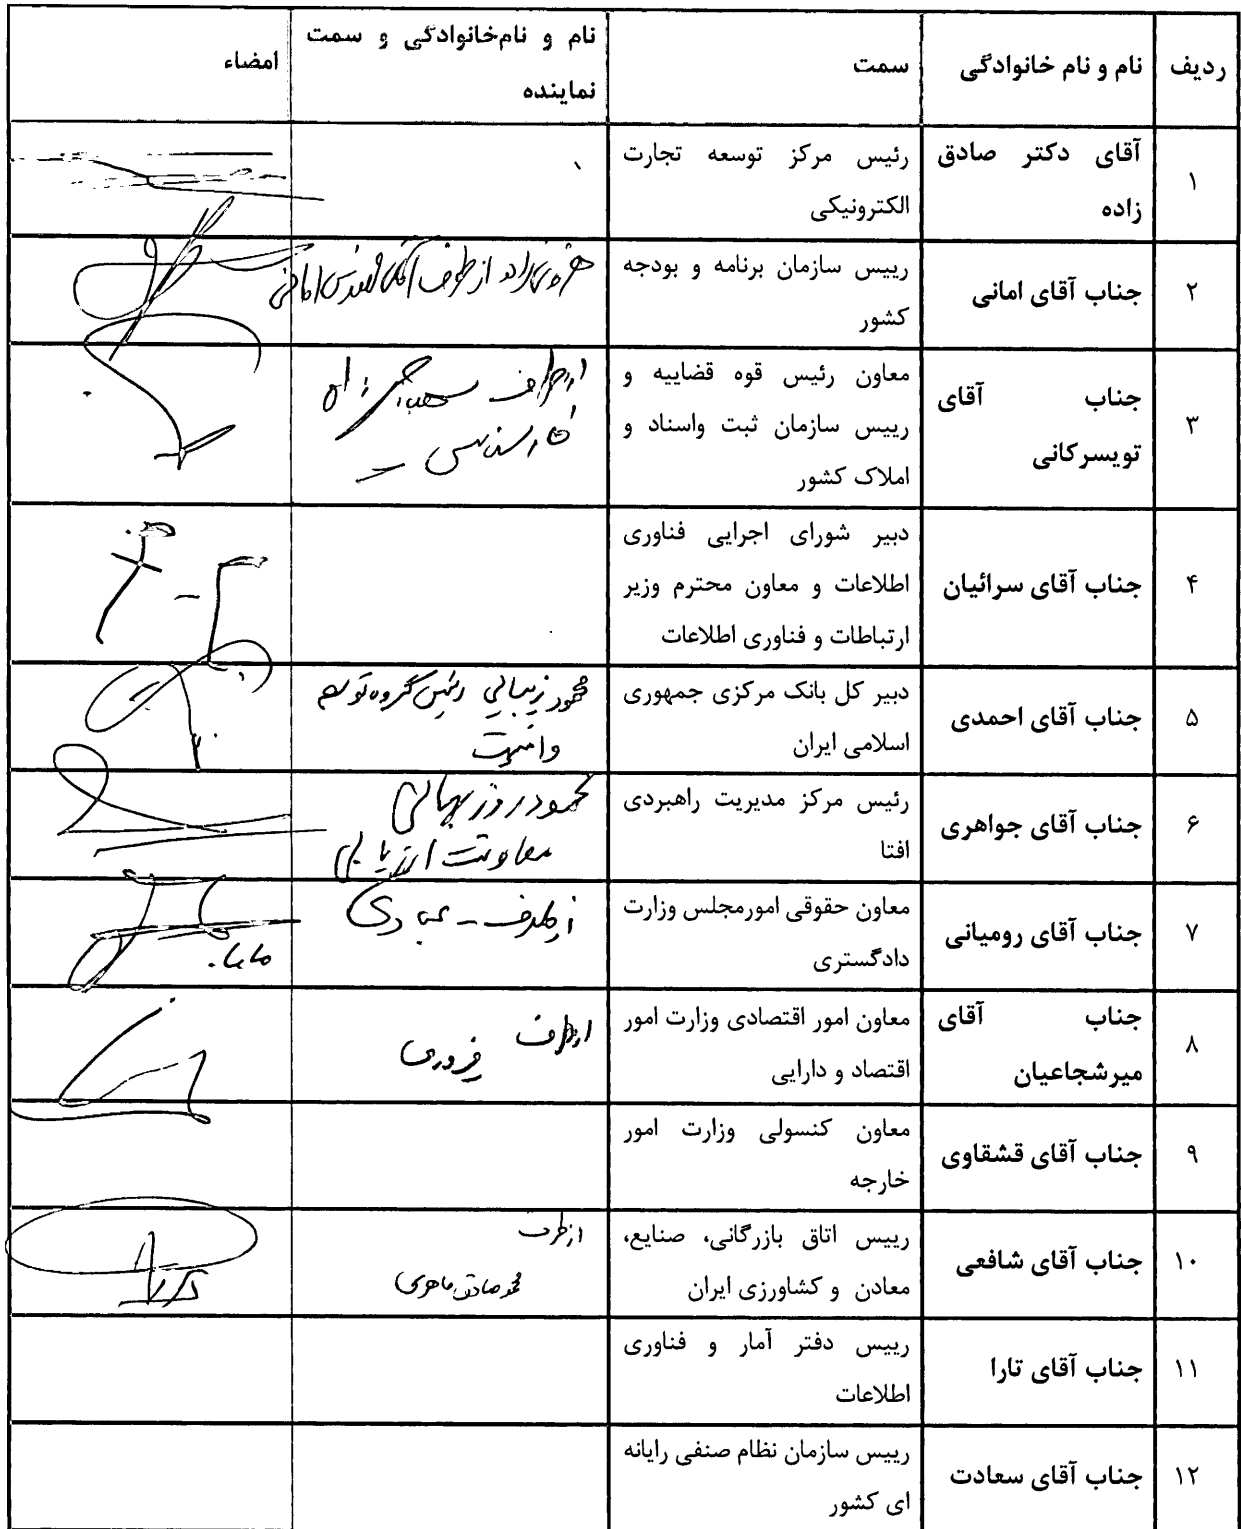 ردیف
نام و نام خانوادگی
سمت
نام و نام‌خانوادگی و سمت
نماینده
امضاء
۱
آقای دکتر صادق
زاده
رئیس مرکز توسعه تجارت
الکترونیکی
۲
جناب آقای امانی
رییس سازمان برنامه و بودجه
کشور
از طرف آقای مهندس امانی
۳
جناب آقای
تویسرکانی
معاون رئیس قوه قضاییه و
رییس سازمان ثبت واسناد و
املاک کشور
از طرف
کارشناس
۴
جناب آقای سرائیان
دبیر شورای اجرایی فناوری
اطلاعات و معاون محترم وزیر
ارتباطات و فناوری اطلاعات
۵
جناب آقای احمدی
دبیر کل بانک مرکزی جمهوری
اسلامی ایران
محمود زیبایی رئیس گروه توسعه
و امنیت
۶
جناب آقای جواهری
رئیس مرکز مدیریت راهبردی
افتا
محمود روزبهانی
معاونت ارزیابی
۷
جناب آقای رومیانی
معاون حقوقی امورمجلس وزارت
دادگستری
از طرف - عبادی
۸
جناب آقای
میرشجاعیان
معاون امور اقتصادی وزارت امور
اقتصاد و دارایی
از طرف
۹
جناب آقای قشقاوی
معاون کنسولی وزارت امور
خارجه
۱۰
جناب آقای شافعی
رییس اتاق بازرگانی، صنایع،
معادن و کشاورزی ایران
از طرف
محمد صادق
۱۱
جناب آقای تارا
رییس دفتر آمار و فناوری
اطلاعات
۱۲
جناب آقای سعادت
رییس سازمان نظام صنفی رایانه
ای کشور